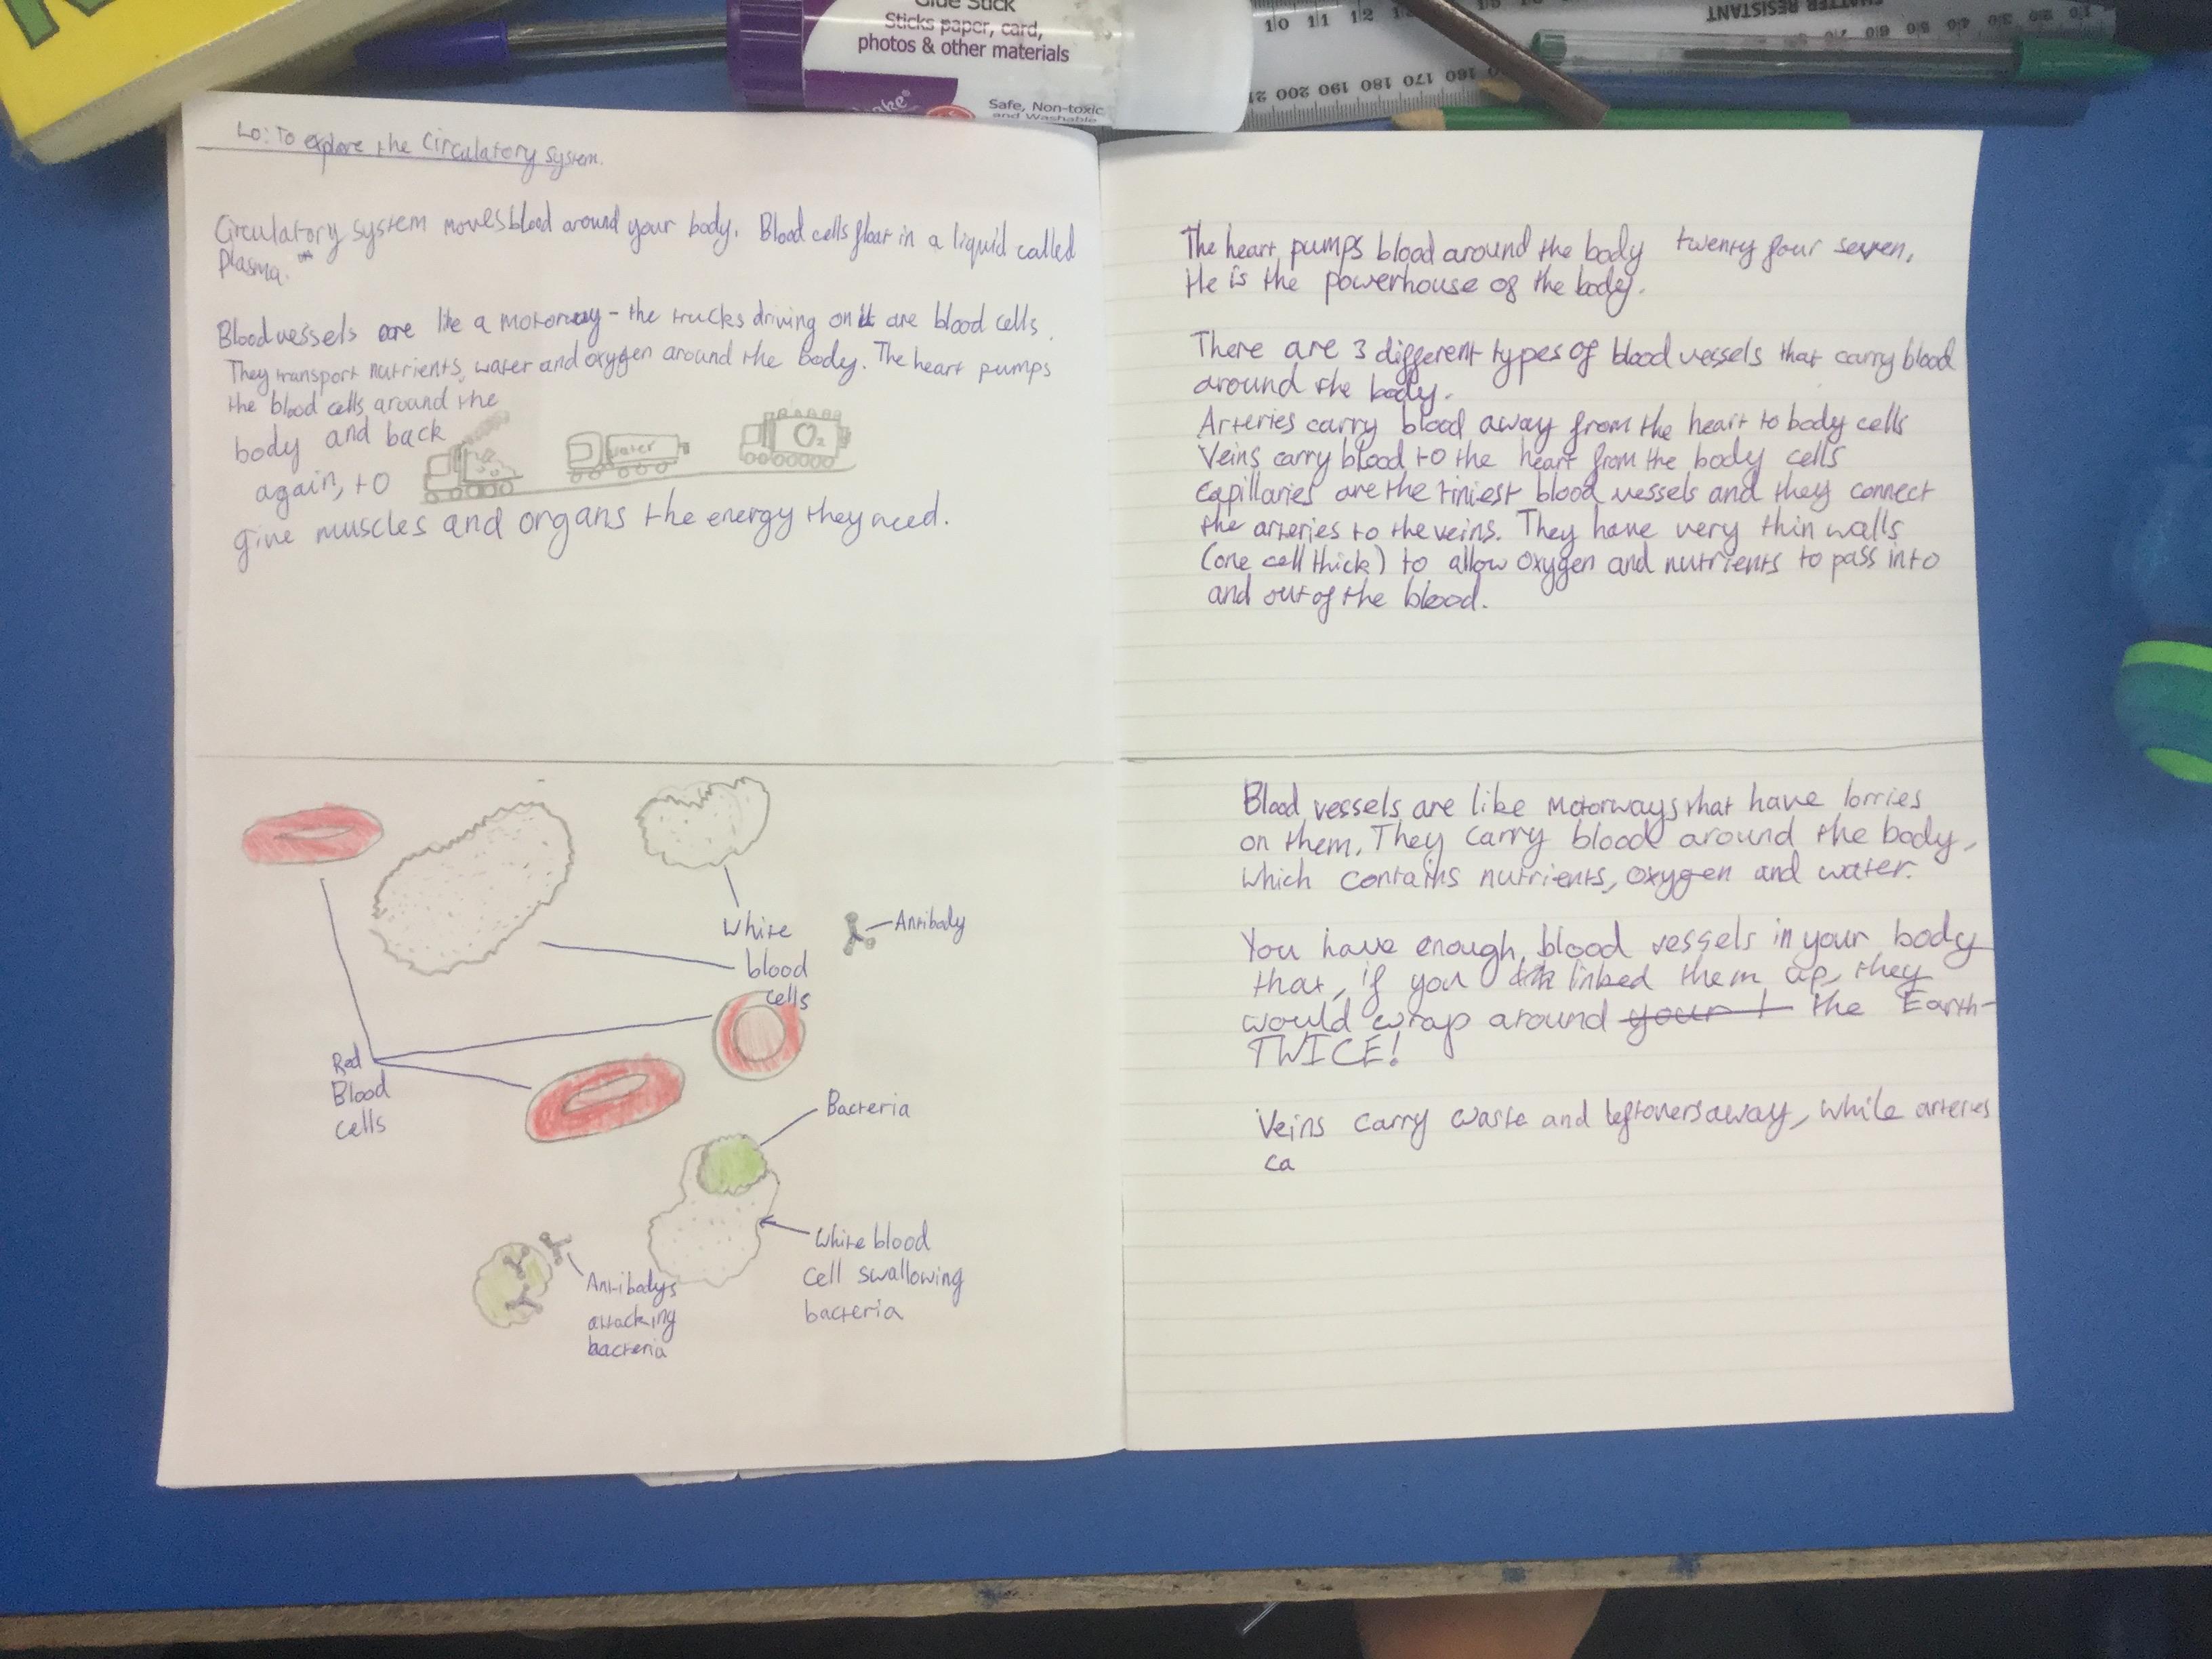 Glue Stick
Sticks paper, card,
photos & other materials
Safe, Non-toxic
and Washable
10 11 12
SHATTER RESISTANT
200 190 180 170 160
Lo: To explore the Circulatory System.
Circulatory system moves blood around your body. Blood cells float in a liquid called
Plasma.
Blood vessels are like a motorway - the trucks driving on it are blood cells.
They transport nutrients, water and oxygen around the body. The heart pumps
the blood cells around the
body and back
again, to
water
O2
give muscles and organs the energy they need.
White
blood
cells
Antibody
Red
Blood
cells
Bacteria
White blood
cell swallowing
bacteria
Antibodys
attacking
bacteria
The heart pumps blood around the body twenty four seven,
He is the powerhouse of the body.
There are 3 different types of blood vessels that carry blood
around the body.
Arteries carry blood away from the heart to body cells
Veins carry blood to the heart from the body cells
capillaries are the tiniest blood vessels and they connect
the arteries to the veins. They have very thin walls
(one cell thick) to allow oxygen and nutrients to pass into
and out of the blood.
Blood vessels are like Motorways that have lorries
on them. They carry blood around the body,
which contains nutrients, oxygen and water.
You have enough blood vessels in your body
that, if you linked them up, they
would wrap around your l the Earth-
TWICE!
Veins carry waste and leftovers away, while arteries
ca